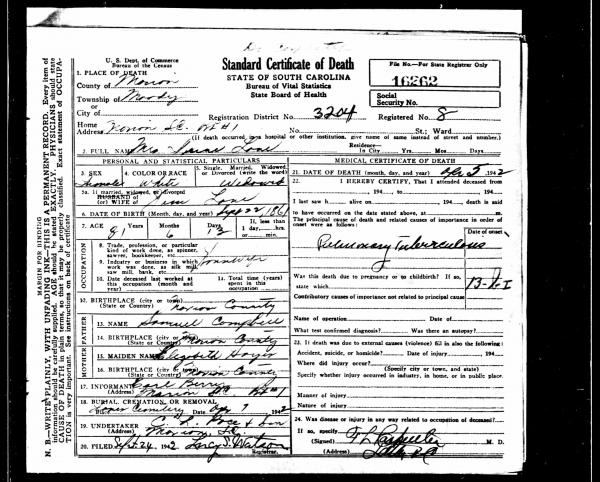 U. S. Dept. of Commerce
Bureau of the Census
Standard Certificate of Death
STATE OF SOUTH CAROLINA
Bureau of Vital Statistics
State Board of Health
File No.—For State Registrar Only
16262
Social
Security No.
1. PLACE OF DEATH
County of Marion
Township of Moody
City of
Registration District No. 3204
Registered No. 8
Home
Address Marion S.C. Rt #1
No. St.; Ward
(If death occurred in a hospital or other institution, give name of same instead of street and number.)
2. FULL NAME Mrs. Lane
Residence—
In City Yrs. Mos. Days
PERSONAL AND STATISTICAL PARTICULARS
3. SEX
Female
4. COLOR OR RACE
White
5. Single, Married, Widowed,
or Divorced (write the word)
Widowed
5a. If married, widowed, or divorced
HUSBAND of
(or) WIFE of Lane
6. DATE OF BIRTH (Month, day, and year) Sept 22, 1861
7. AGE 81 6 13
If, less than
1 day, hrs.
or min.
OCCUPATION
8. Trade, profession, or particular
kind of work done, as spinner,
sawyer, bookkeeper, etc.
9. Industry or business in which
work was done, as silk mill,
saw mill, bank, etc.
10. Date deceased last worked at
this occupation (month and
year)
11. Total time (years)
spent in this
occupation
12. BIRTHPLACE (city or town)
(State or Country) Marion County
FATHER
13. NAME Samuel Campbell
14. BIRTHPLACE (city or town)
(State or Country) Marion County
MOTHER
15. MAIDEN NAME Elizabeth
16. BIRTHPLACE (city or town)
(State or Country) Marion County
17. INFORMANT Carl Berry
(Address) Marion SC Rt #1
18. BURIAL, CREMATION, OR REMOVAL
Cemetery Date Apr 7 1942
19. UNDERTAKER & Son
(Address) Marion, S.C.
20. FILED Sept. 24, 1942 Watson
Registrar.
MEDICAL CERTIFICATE OF DEATH
21. DATE OF DEATH (month, day, and year) Apr 5, 1942
22. I HEREBY CERTIFY, That I attended deceased from
194 , to 194
I last saw h alive on 194 , death is said
to have occurred on the date stated above, at m.
The principal cause of death and related causes of importance in order of
onset were as follows:
Date of onset
Pulmonary Tuberculosis
Was this death due to pregnancy or to childbirth? If so,
state which
Contributory causes of importance not related to principal cause
Name of operation Date of
What test confirmed diagnosis? Was there an autopsy?
23. If death was due to external causes (violence) fill in also the following:
Accident, suicide, or homicide? Date of injury 194
Where did injury occur?
(Specify city or town, and state)
Specify whether injury occurred in industry, in home, or in public place.
Manner of injury
Nature of injury
24. Was disease or injury in any way related to occupation of deceased?
If so, specify
(Signed) M. D.
(Address)
MARGIN FOR BINDING
N. B.—WRITE PLAINLY, WITH UNFADING INK—THIS IS A PERMANENT RECORD. Every item of
information should be carefully supplied. AGE should be stated EXACTLY. PHYSICIANS should state
CAUSE OF DEATH in plain terms, so that it may be properly classified. Exact statement of OCCUPA-
TION is very important. See instructions on back of certificate